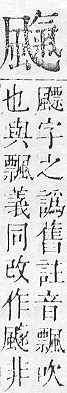 字之譌舊註音飄吹
也與飄義同改作非